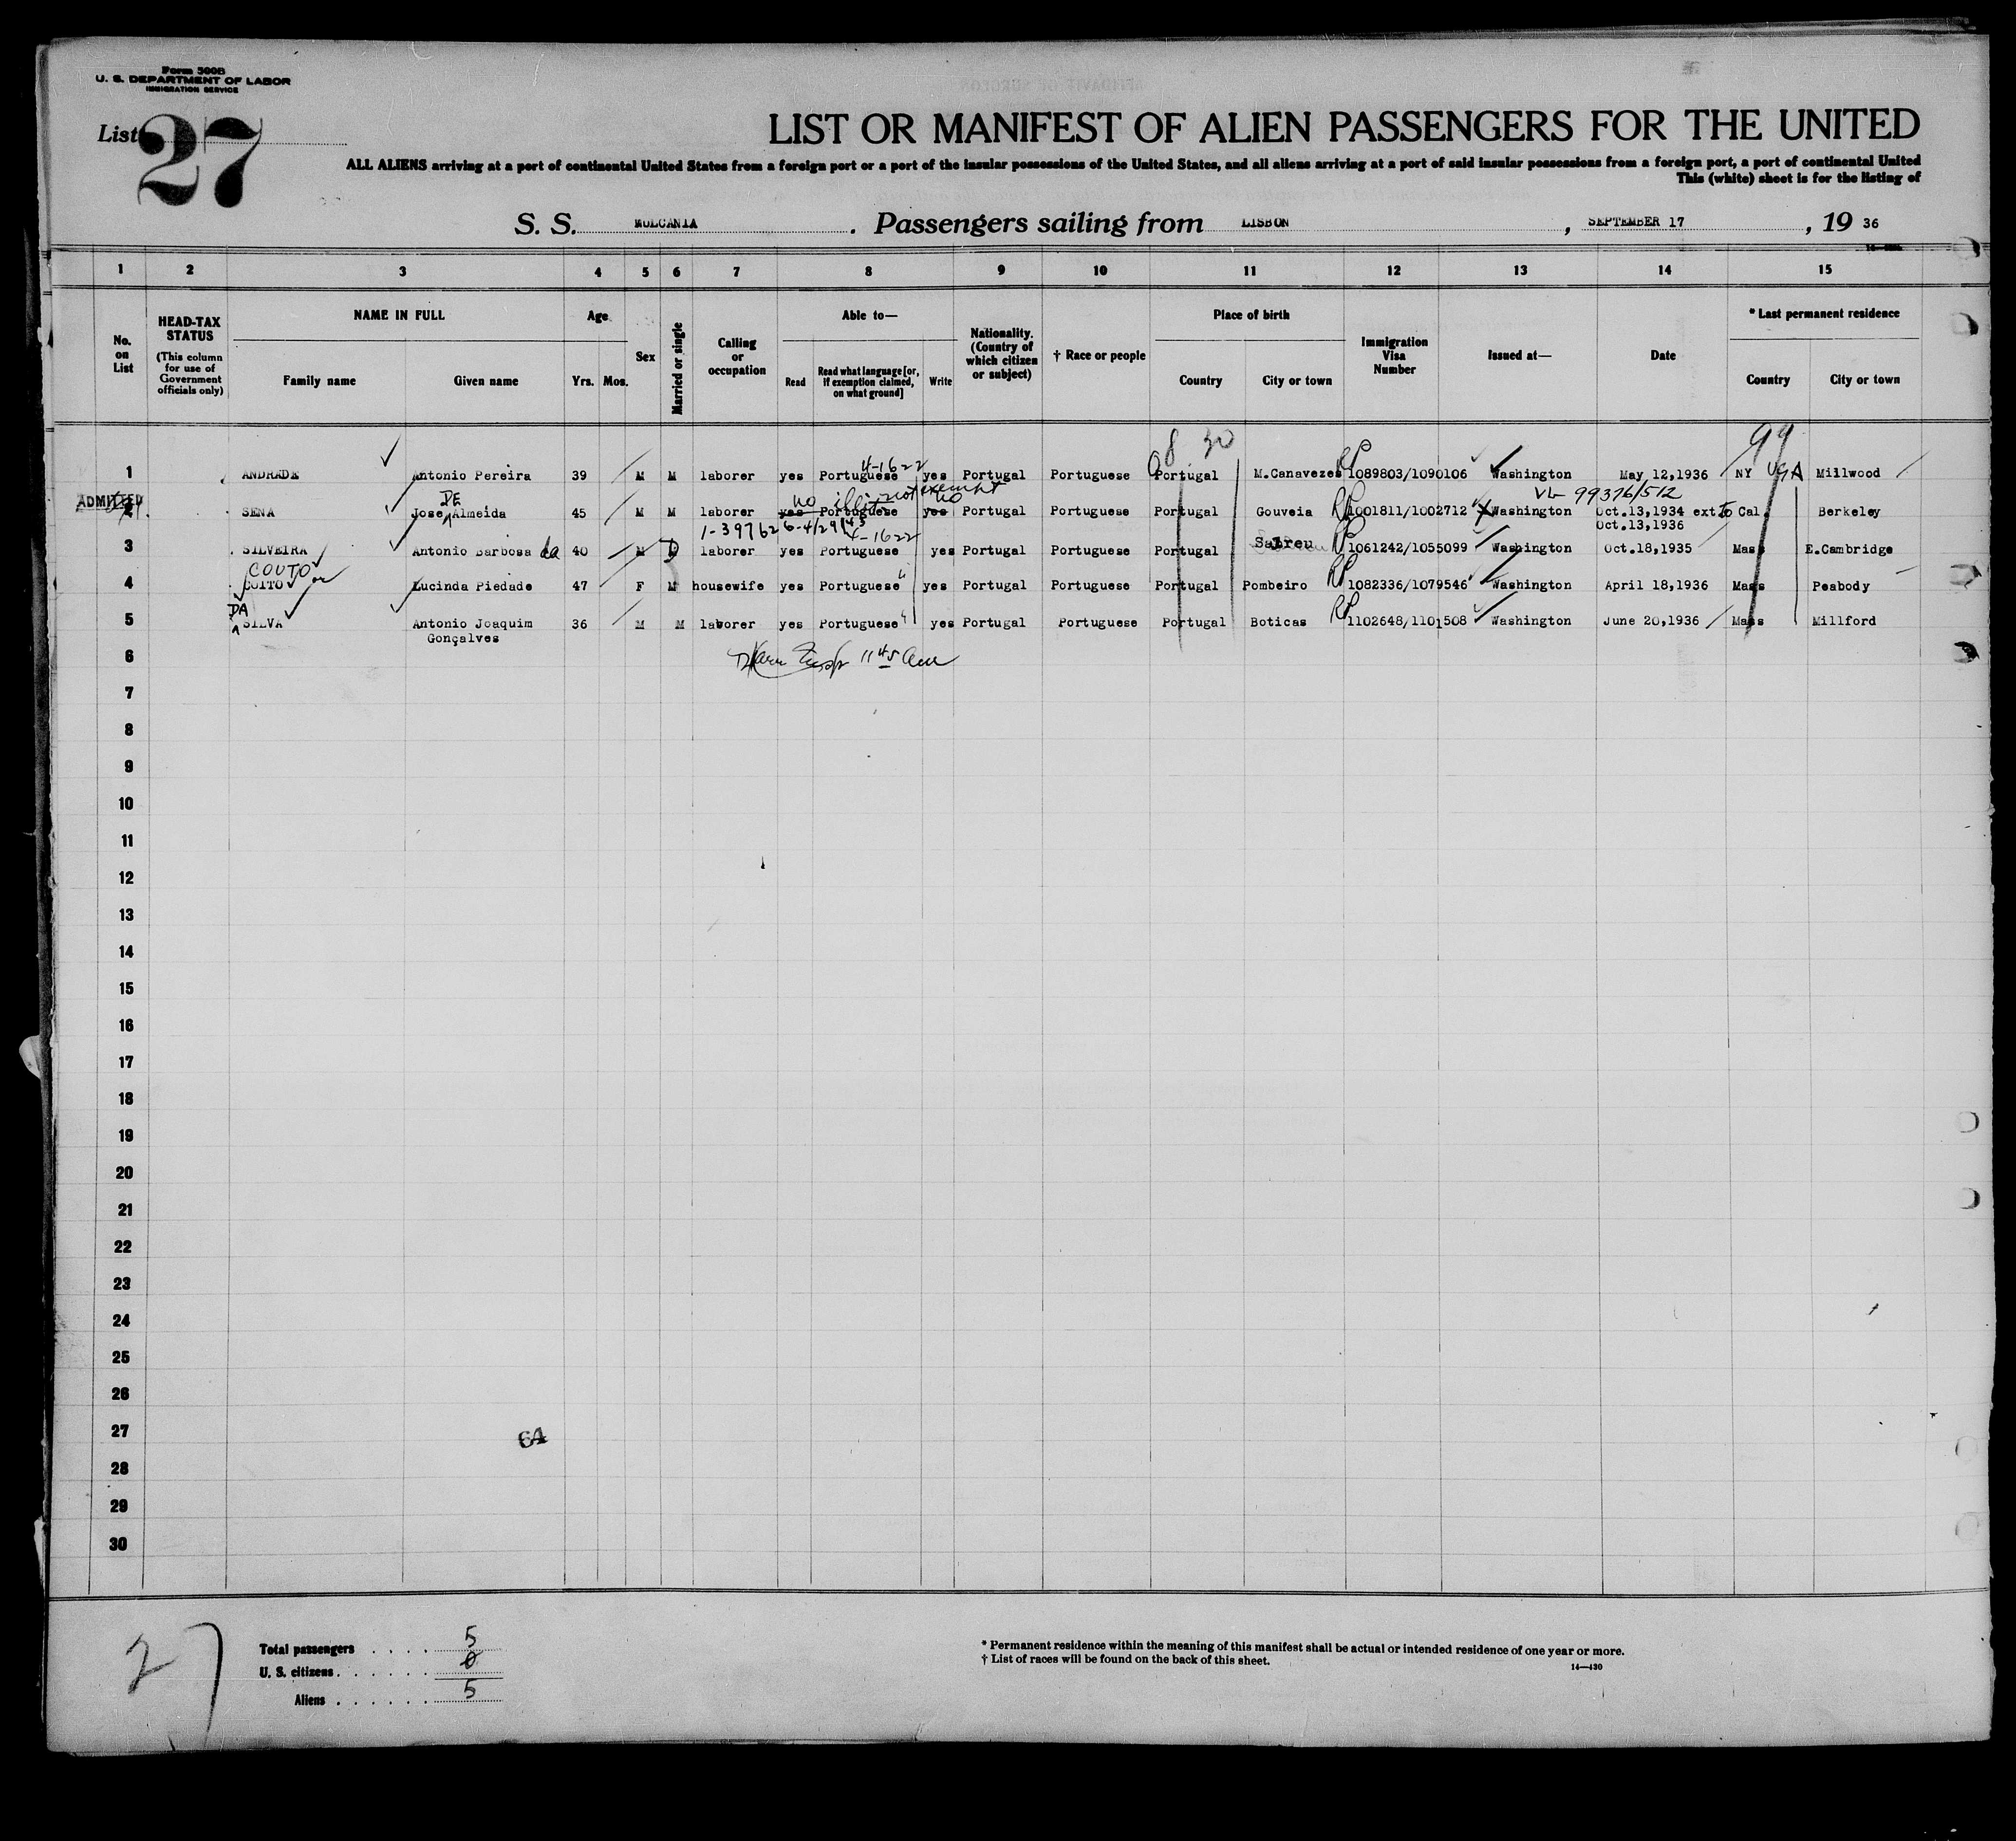 Form 500B
U. S. DEPARTMENT OF LABOR
IMMIGRATION SERVICE
List 27
LIST OR MANIFEST OF ALIEN PASSENGERS FOR THE UNITED
ALL ALIENS arriving at a port of continental United States from a foreign port or a port of the insular possessions of the United States, and all aliens arriving at a port of said insular possessions from a foreign port, a port of continental United
This (white) sheet is for the listing of
S. S. WULCANIA . Passengers sailing from LISBON , SEPTEMBER 17 , 19 36
1 2 3 4 5 6 7 8 9 10 11 12 13 14 15
No. on List
HEAD-TAX STATUS (This column for use of Government officials only)
NAME IN FULL
Family name Given name
Age
Yrs. Mos.
Sex
Married or single
Calling or occupation
Able to—
Read Read what language [or, if exemption claimed, on what ground] Write
Nationality. (Country of which citizen or subject)
† Race or people
Place of birth
Country City or town
Immigration Visa Number
Issued at—
Date
* Last permanent residence
Country City or town
8 30 99
4-1622
1 ANDRADE Antonio Pereira 39 M M laborer yes Portuguese yes Portugal Portuguese Portugal M.Canavezes RP 1089803/1090106 Washington May 12,1936 NY USA Millwood
ADMITTED DE no not exempt no 99376/512
2 SENA Jose Almeida 45 M M laborer yes Portuguese yes Portugal Portuguese Portugal Gouveia RP 1001811/1002712 Washington Oct.13,1934 ext to Cal. Berkeley
Oct.13,1936
1-397626-4/29/43 4-1622
3 SILVEIRA Antonio Barbosa da 40 M D laborer yes Portuguese yes Portugal Portuguese Portugal RP 1061242/1055099 Washington Oct.18,1935 Mass E.Cambridge
COUTO or
4 COITO Lucinda Piedade 47 F M housewife yes Portuguese " yes Portugal Portuguese Portugal Pombeiro RP 1082336/1079546 Washington April 18,1936 Mass Peabody
DA
5 SILVA Antonio Joaquim 36 M M laborer yes Portuguese " yes Portugal Portuguese Portugal Boticas RP 1102648/1101508 Washington June 20,1936 Mass Millford
Gonçalves
6 11 45 am
7
8
9
10
11
12
13
14
15
16
17
18
19
20
21
22
23
24
25
26
27
64
28
29
30
27
Total passengers . . . . 5
U. S. citizens . . . . . . 0
Aliens . . . . . . 5
* Permanent residence within the meaning of this manifest shall be actual or intended residence of one year or more.
† List of races will be found on the back of this sheet.
14—430